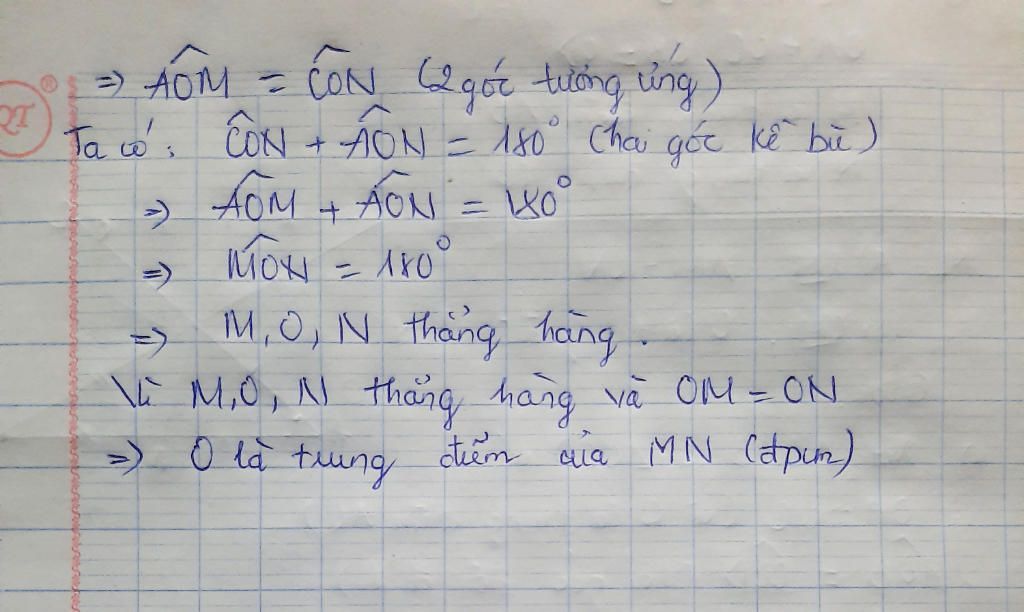 ⇒ AÔM = CÔN (2 góc tương ứng)
Ta có: CÔN + AÔN = 180° (hai góc kề bù)
⇒ AÔM + AÔN = 180°
⇒ MÔN = 180°
⇒ M, O, N thẳng hàng.
Vì M, O, N thẳng hàng và OM = ON
⇒ O là trung điểm của MN (đpcm)